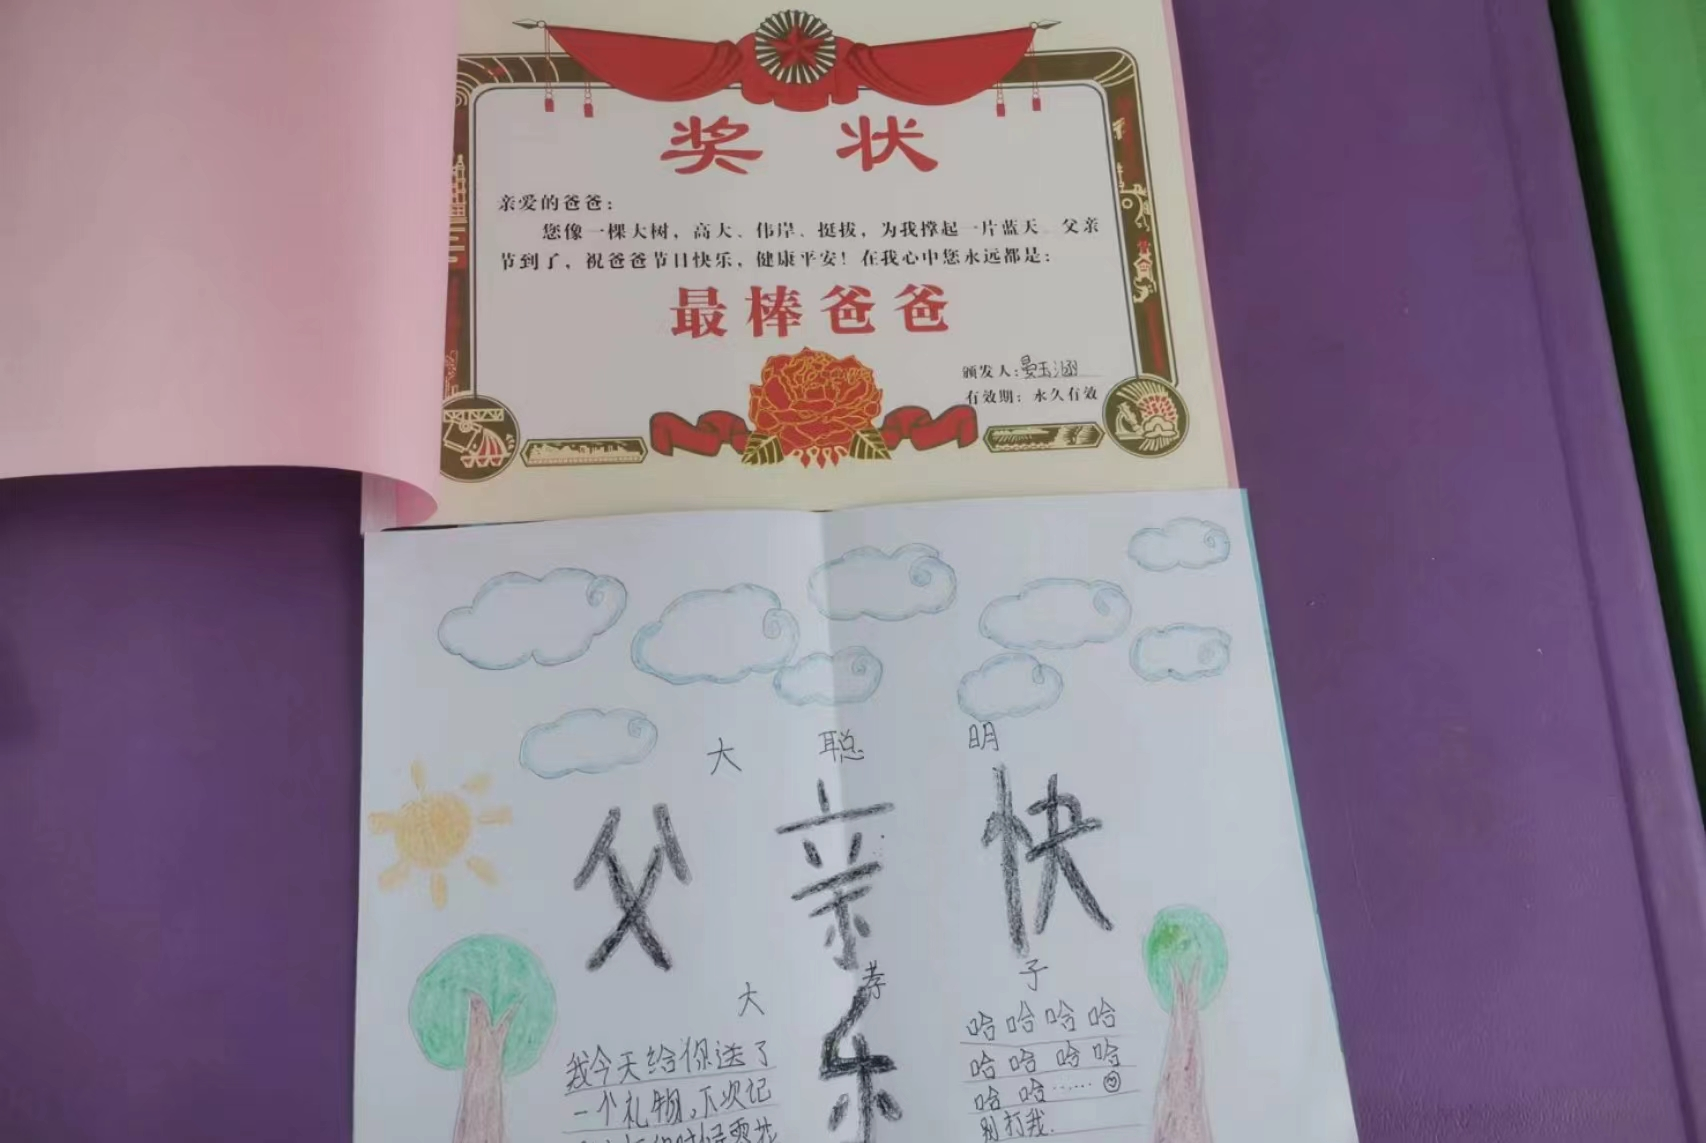 奖状
亲爱的爸爸：
您像一棵大树，高大、伟岸、挺拔，为我撑起一片蓝天。父亲
节到了，祝爸爸节日快乐，健康平安！在我心中您永远都是：
最棒爸爸
颁发人：晏玉涵
有效期：永久有效
大聪明
父亲快
乐
大孝子
我今天给你送了
一个礼物，下次记
哈哈哈哈
哈哈哈哈
哈哈……
别打我.